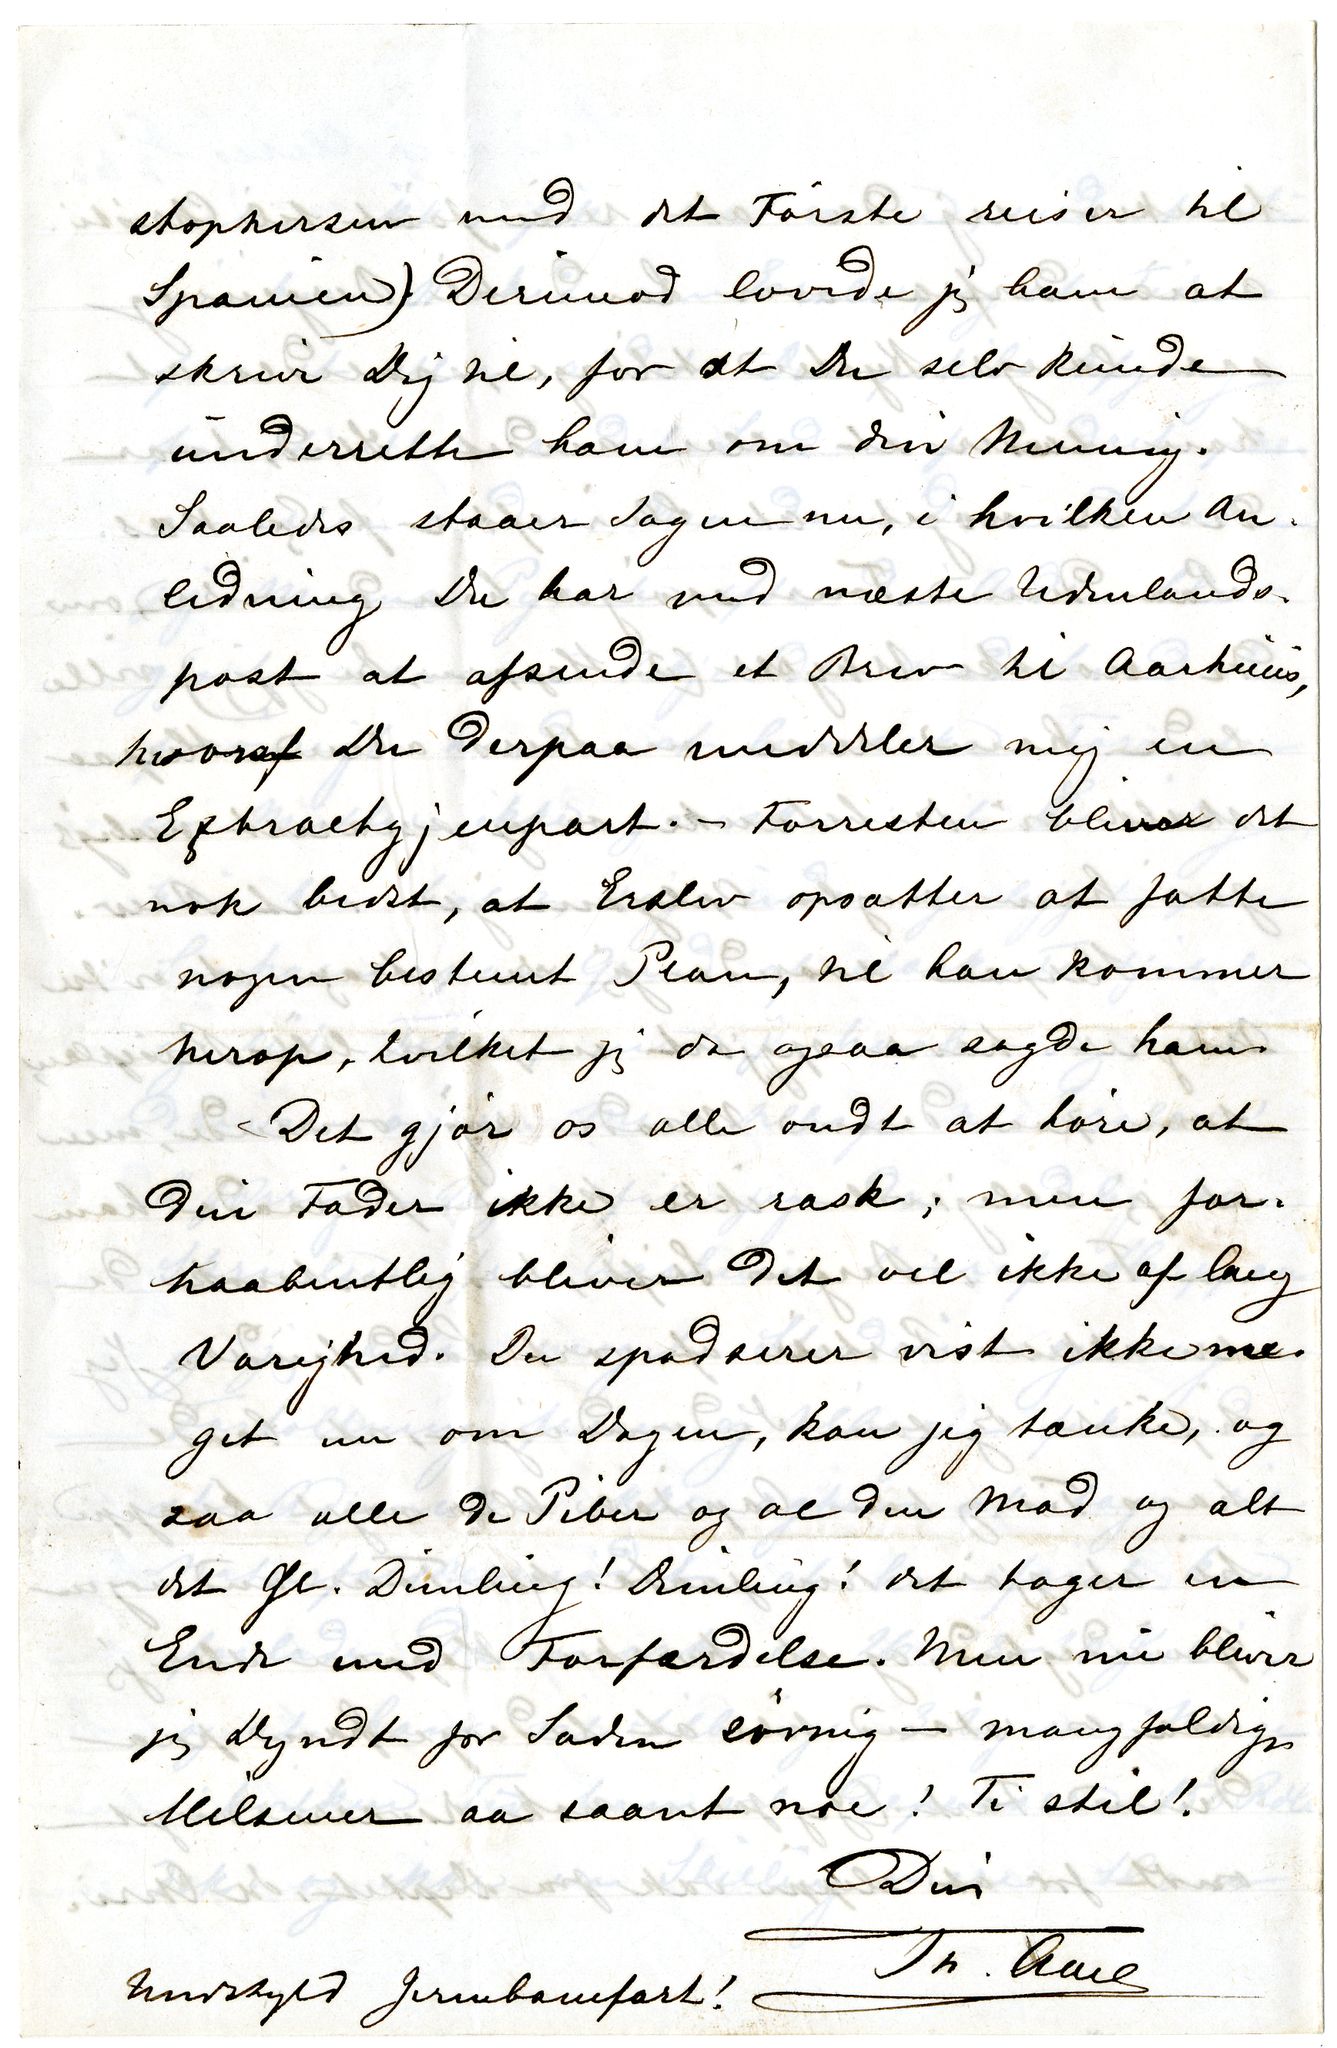 stophersen med det Förste reiser til
Spanien). Derimod lovede jeg ham at
skrive Dig til, for at Du selv kunde
underrette ham om din Mening.
Saaledes staaer Sagen nu, i hvilken An-
ledning Du har med næste Udenlands-
post at afsende et Brev til Aarhuus,
hvoraf Du derpaa meddeler mig en
Extractgjenpart. – Forresten bliver det
nok bedst, at Erslev opsætter at fatte
nogen bestemt Plan, til han kommer
herop, hvilket jeg da ogsaa sagde ham.
Det gjör os alle ondt at höre, at
din Fader ikke er rask; men for-
haabentlig bliver det vel ikke af lang
Varighed. Du spadserer vist ikke me-
get nu om Dagen, kan jeg tænke, og
saa alle de Piber og al den Mad og alt
det Øl. Dimling! Dimling! det tager en
Ende med Forfærdelse. Men nu bliver
jeg Dyndt for Saden sövnig – mangfoldige
Hilsener aa saant noe! Ti stil!
Din
Th. Aall
Undskyld Jernbanefart!